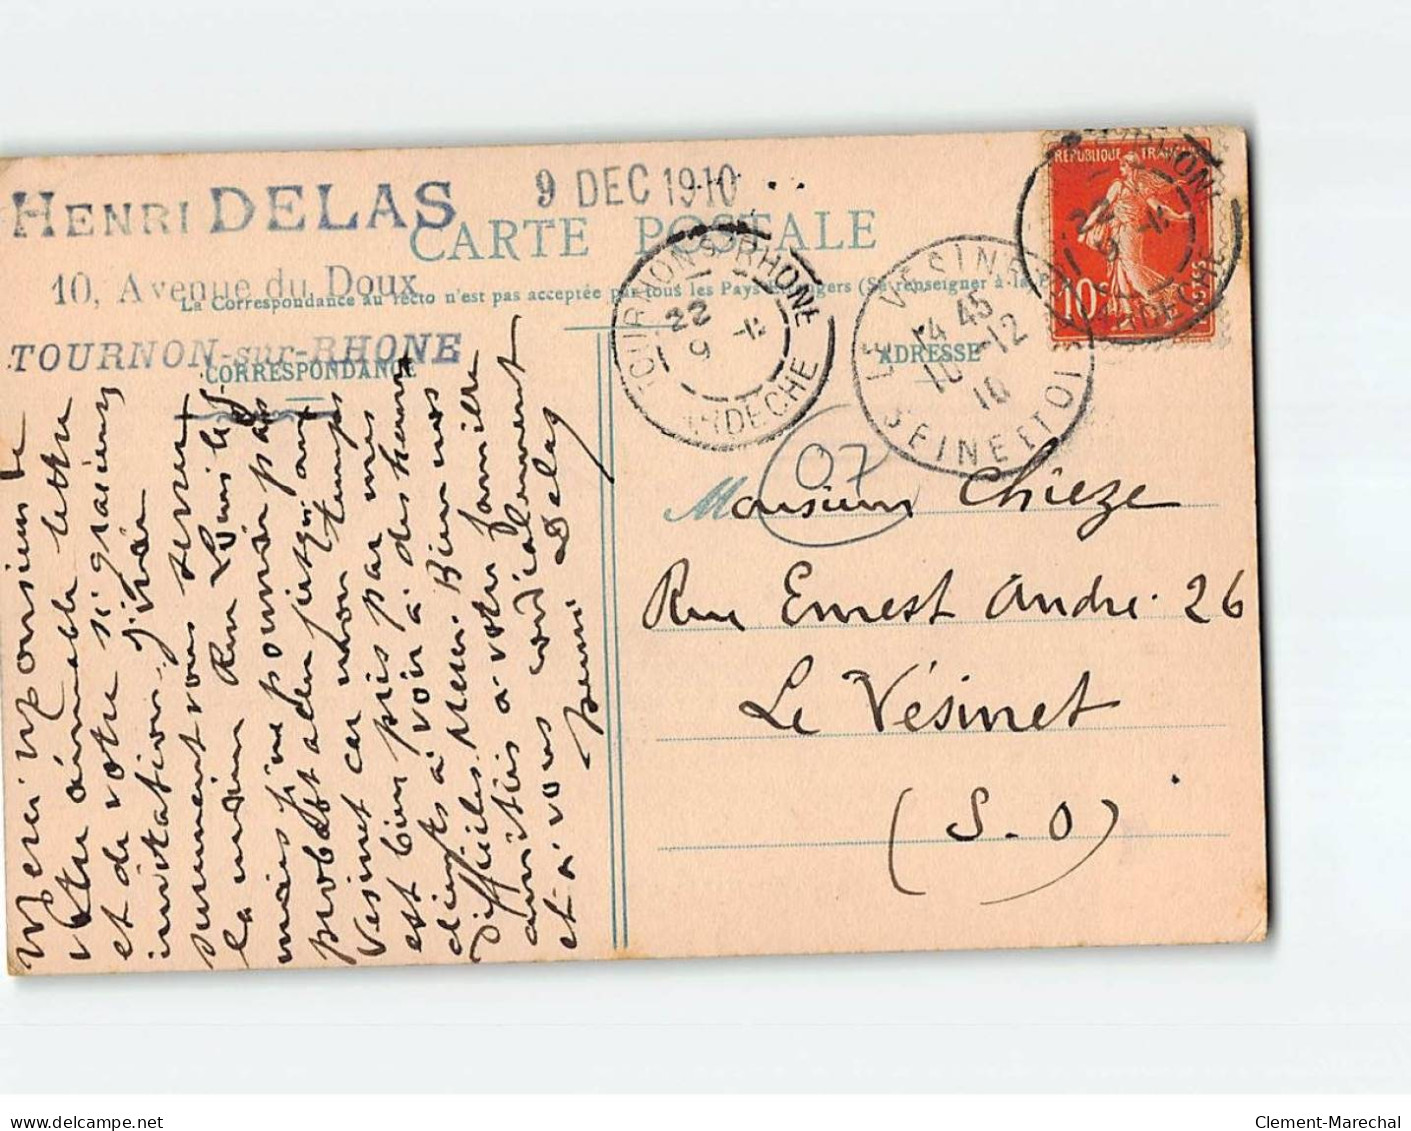 HENRI DELAS
10, Avenue du Doux
TOURNON-sur-RHONE
9 DEC 1910
CARTE POSTALE
La Correspondance au recto n'est pas acceptée par tous les Pays Etrangers (Se renseigner à la P
CORRESPONDANCE
ADRESSE
TOURNON-S-RHONE
22
9 -12
ARDECHE
LE VESINET
14 45
10 -12
10
SEINE ET OISE
REPUBLIQUE FRANÇAISE
10
22
9
ARDECHE
07
Merci Monsieur de
votre aimable lettre
et de votre si gracieuse
invitation. J'irai
surement vous serrer
la main Rue Louis
mais je ne pourrai pas
probabt aller jusqu'au
Vesinet car mon temps
est bien pris par mes
clients à voir à des heures
difficiles. Merci. Bien mes
amitiés à votre famille
et à vous cordialement
Henri Delas
Monsieur Chièze
Rue Ernest André. 26
Le Vésinet
(S.O)
Clement-Marechal